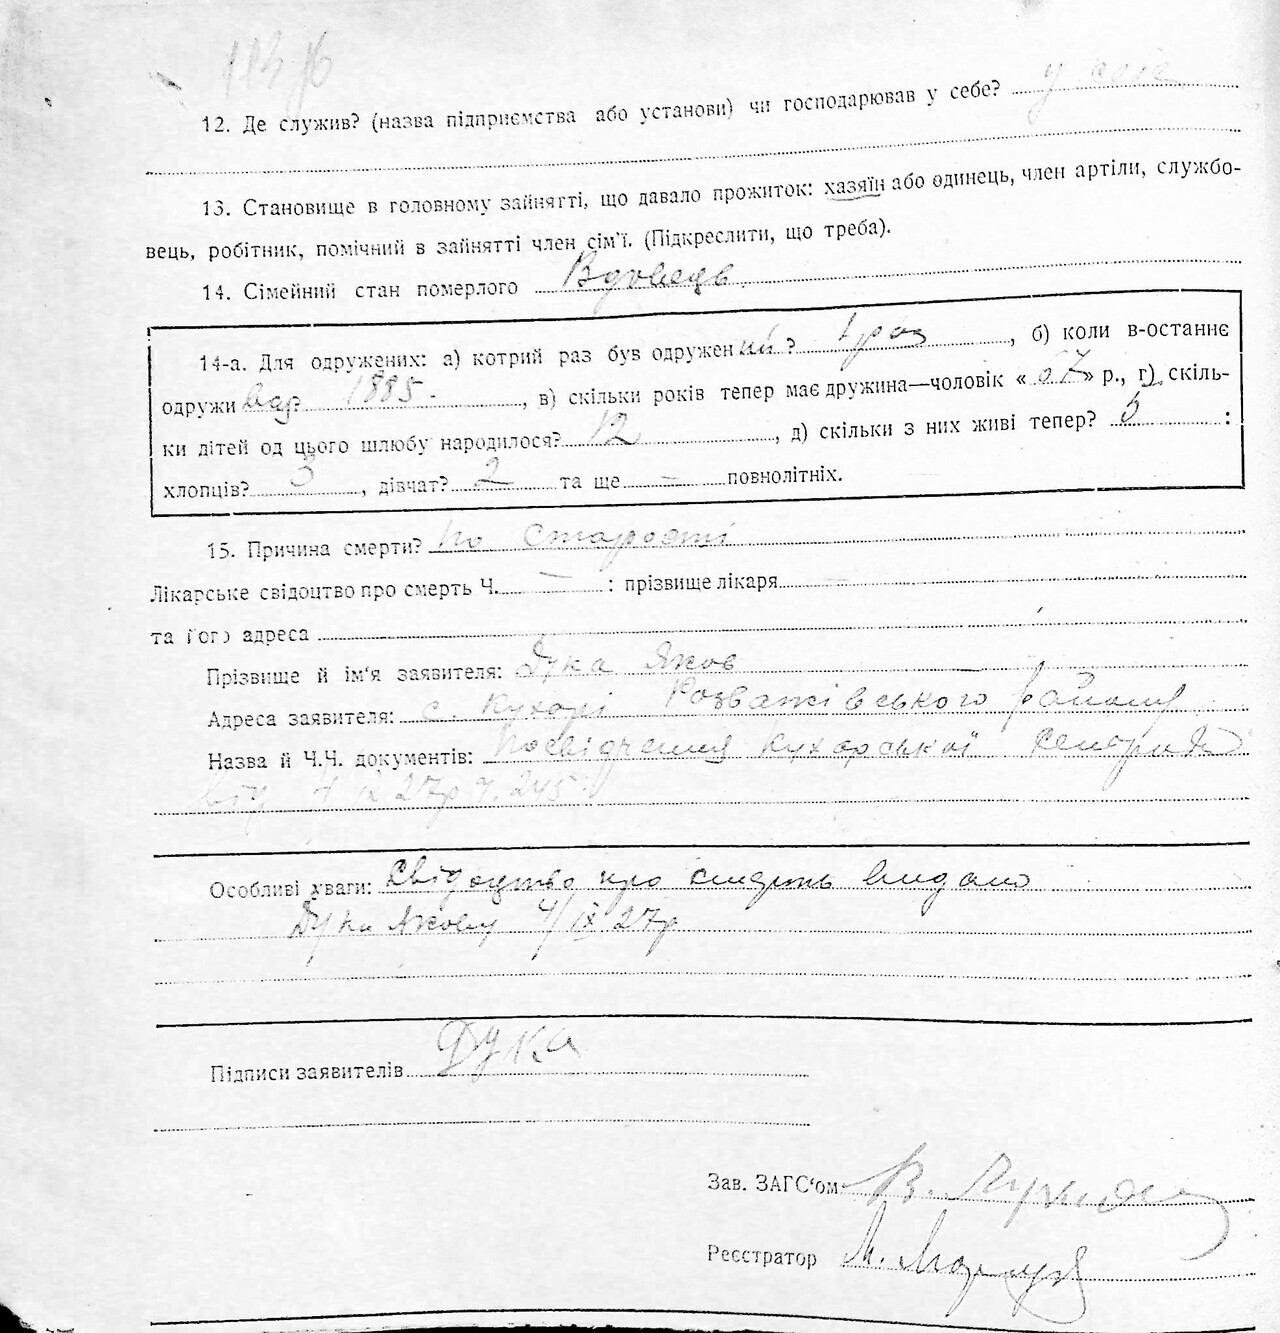 12. Де служив? (назва підприємства або установи) чи господарював у себе? у селе
13. Становище в головному зайнятті, що давало прожиток: хазяїн або одинець, член артілі, службо-
вець, робітник, помічний в зайнятті член сім'ї. (Підкреслити, що треба).
14. Сімейний стан померлого Вдовець
14-а. Для одружених: а) котрий раз був одружений? 1 раз, б) коли в-останнє
одружи всь? 1885., в) скільки років тепер має дружина—чоловік «67» р., г) скіль-
ки дітей од цього шлюбу народилося? 12, д) скільки з них живі тепер? 5 :
хлопців? 3, дівчат? 2 та ще — повнолітніх.
15. Причина смерти? по старости
Лікарське свідоцтво про смерть Ч. — : прізвище лікаря —
та його адреса
Прізвище й ім'я заявителя: Дука Яков
Адреса заявителя: с. Кухарі Розважівського району
Назва й Ч.Ч. документів: Посвідчення Кухарської сельради
від 4 IX 27р ч. 245
Особливі уваги: Свідоцтво про смерть видано
Дуки Якову 4/IX 27р
Підписи заявителів Дука
Зав. ЗАГС'ом: В.
Реєстратор М.